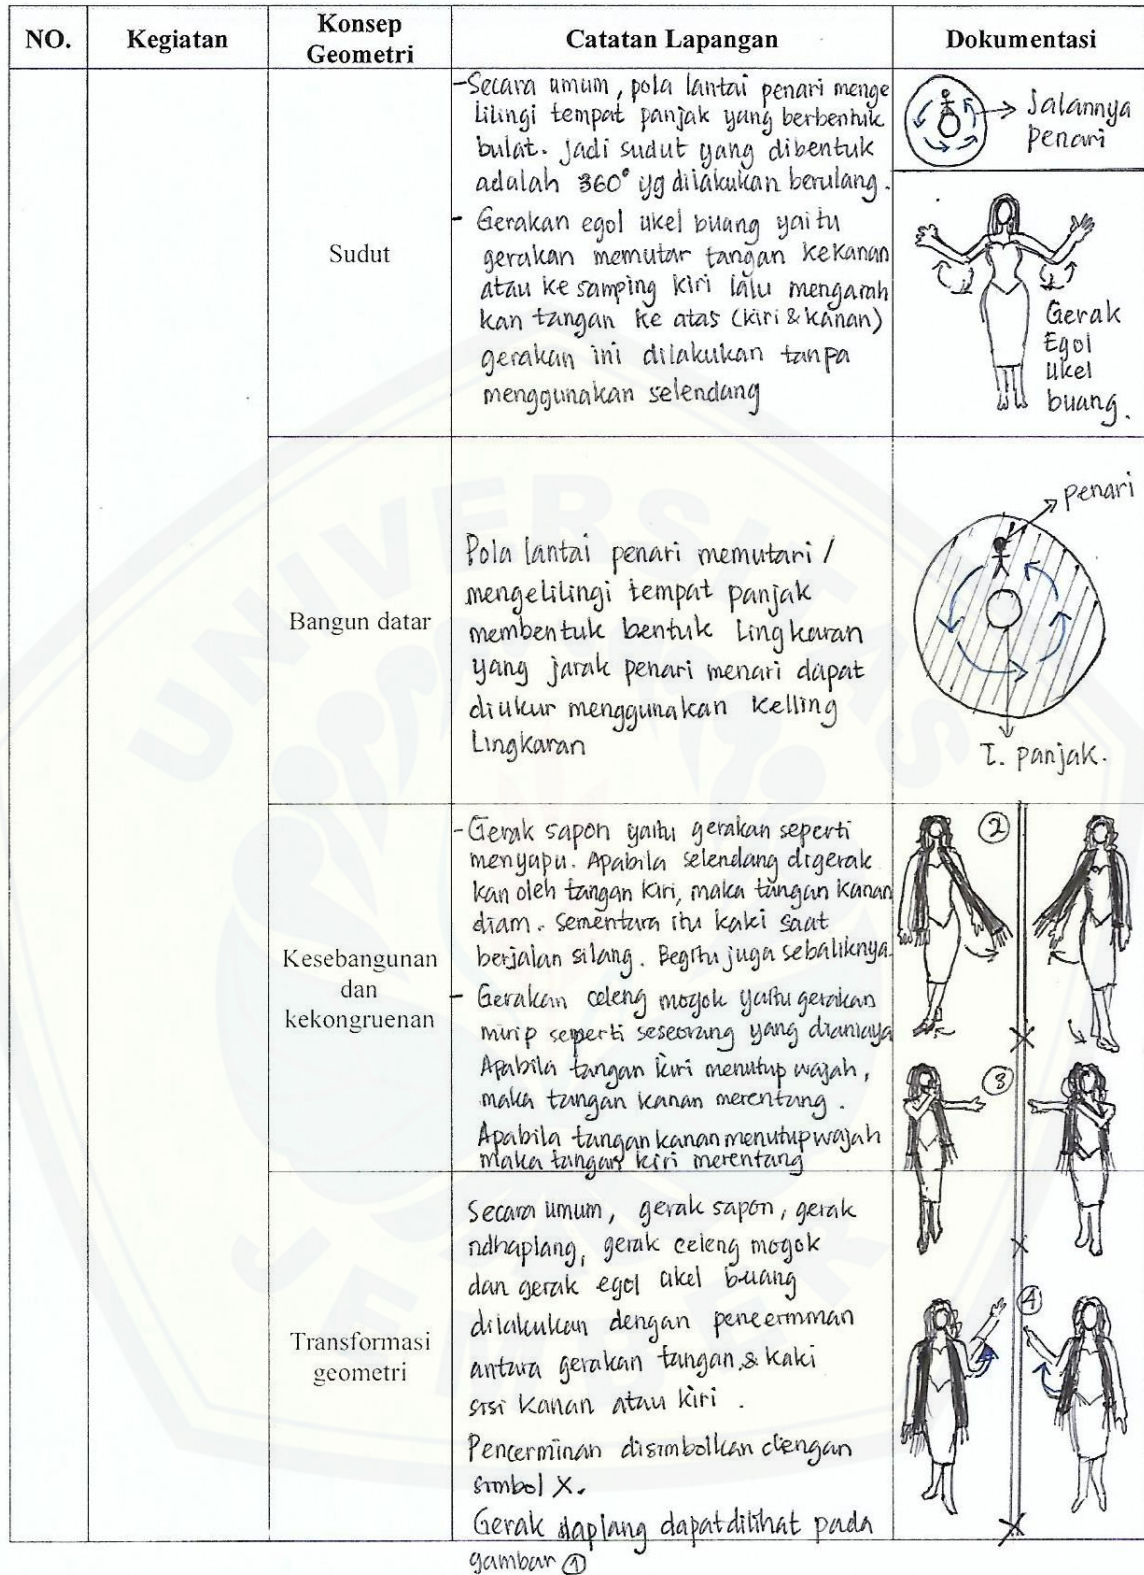 NO.
Kegiatan
Konsep
Geometri
Catatan Lapangan
Dokumentasi
Sudut
-Secara umum, pola lantai penari menge
lilingi tempat panjak yang berbentuk
bulat. Jadi sudut yang dibentuk
adalah 360° yg dilakukan berulang.
- Gerakan egol ukel buang yaitu
gerakan memutar tangan kekanan
atau ke samping kiri lalu mengarah
kan tangan ke atas (kiri & kanan)
gerakan ini dilakukan tanpa
menggunakan selendang
Jalannya
penari
Gerak
Egol
ukel
buang.
Bangun datar
Pola lantai penari memutari /
mengelilingi tempat panjak
membentuk bentuk Lingkaran
yang jarak penari menari dapat
diukur menggunakan kelling
Lingkaran
penari
T. panjak.
Kesebangunan
dan
kekongruenan
-Gerak sapon yaitu gerakan seperti
menyapu. Apabila selendang digerak
kan oleh tangan kiri, maka tangan kanan
diam. Sementara itu kaki saat
berjalan silang. Begitu juga sebaliknya.
- Gerakan celeng mogok yaitu gerakan
mirip seperti seseorang yang dianiaya
Apabila tangan kiri menutup wajah,
maka tangan kanan merentang.
Apabila tangan kanan menutup wajah
maka tangan kiri merentang
2
3
Transformasi
geometri
Secara umum, gerak sapon, gerak
ndhaplang, gerak celeng mogok
dan gerak egol ukel buang
dilakukan dengan pencerminan
antara gerakan tangan & kaki
sisi kanan atau kiri.
Pencerminan disimbolkan dengan
simbol X.
Gerak daplang dapat dilihat pada
gambar 1
4
UNIVERSITAS
JEMBER